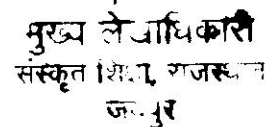 मुख्य लेखाधिकारी
संस्कृत शिक्षा, राजस्थान
जयपुर